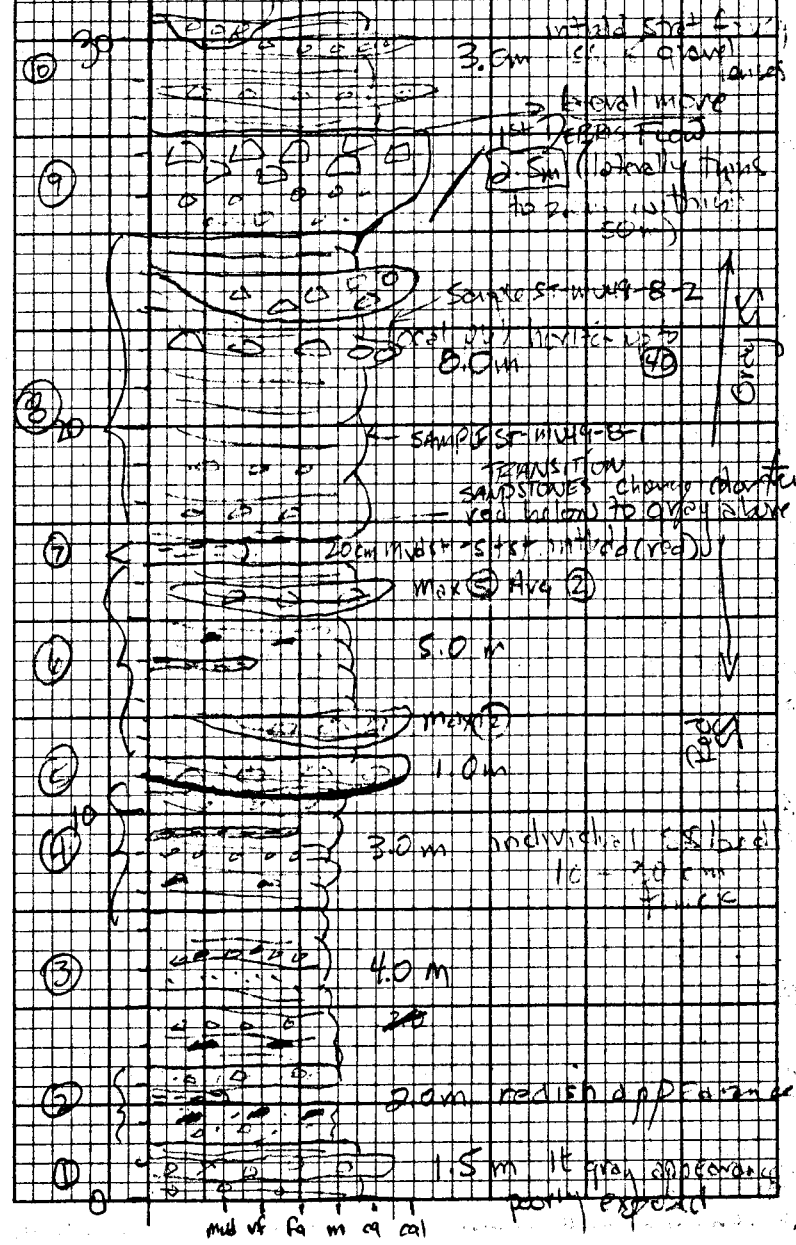 30
10
3.0m
gravel
1st DEBRIS FLOW
9
2.5m (laterally thins
to 2m within
50m)
Sample ST-MV49-8-2
8.0m
40
Gray SS
8
20
SAMPLE ST-MV49-8-1
TRANSITION
SANDSTONES change character
red below to gray above
7
20cm mudst-stst intbdd (red)
max 5 Avg 2
6
5.0 m
max 12
Red SS
5
1.0m
10
4
3.0 m individual SS bed
10 - 20 cm
thick
3
4.0 m
2
2.0m redish appearance
1
1.5 m lt gray appearance
poorly exposed
0
mud vf fg m cg cgl